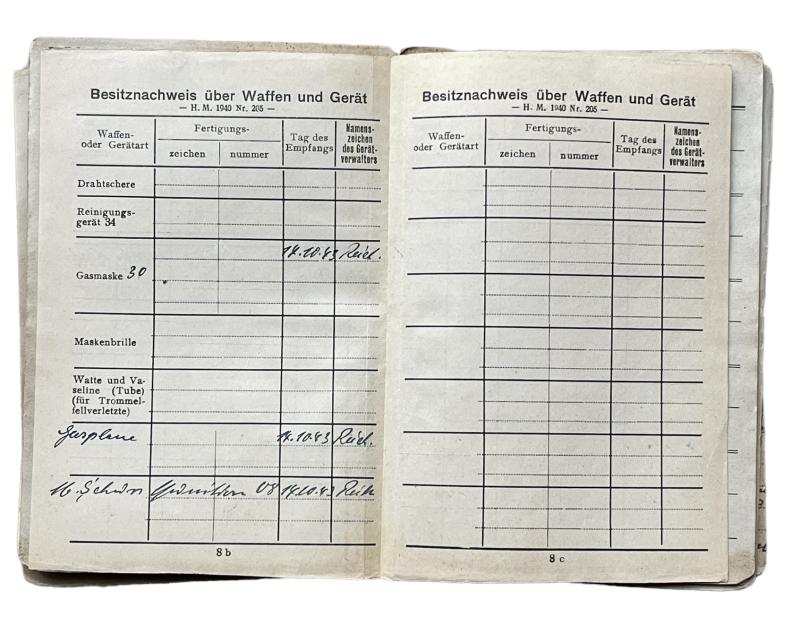 Besitznachweis über Waffen und Gerät
— H. M. 1940 Nr. 205 —
Waffen-
oder Gerätart
Fertigungs-
zeichen
nummer
Tag des
Empfangs
Namens-
zeichen
des Gerät-
verwalters
Drahtschere
Reinigungs-
gerät 34
Gasmaske 30
14.10.43 Reich.
Maskenbrille
Watte und Va-
seline (Tube)
(für Trommel-
fellverletzte)
Gasplane 14.10.43 Reich.
08 14.10.43
8 b
Besitznachweis über Waffen und Gerät
— H. M. 1940 Nr. 205 —
Waffen-
oder Gerätart
Fertigungs-
zeichen
nummer
Tag des
Empfangs
Namens-
zeichen
des Gerät-
verwalters
8 c